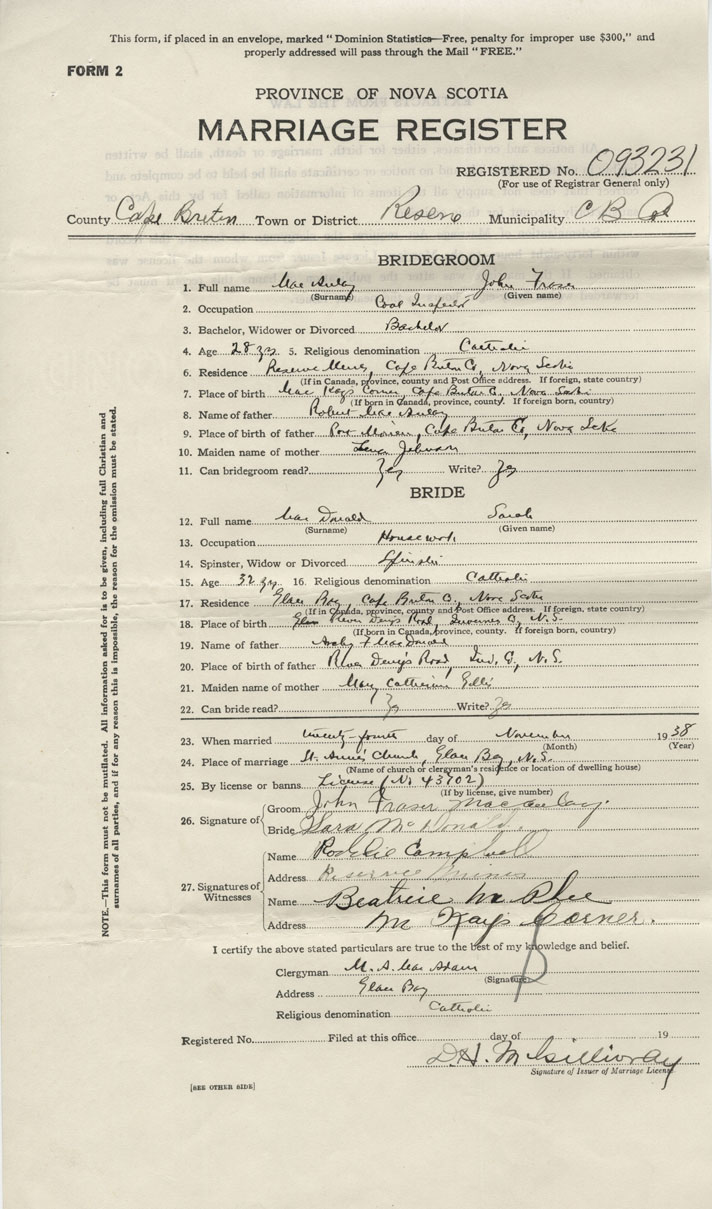 This form, if placed in an envelope, marked "Dominion Statistics—Free, penalty for improper use $300," and
properly addressed will pass through the Mail "FREE."
FORM 2
PROVINCE OF NOVA SCOTIA
MARRIAGE REGISTER
REGISTERED No. 093231
(For use of Registrar General only)
County Cape Breton Town or District Reserve Municipality C B Co
BRIDEGROOM
1. Full name MacAulay John Fraser
(Surname) (Given name)
2. Occupation Coal Inspector
3. Bachelor, Widower or Divorced Bachelor
4. Age 28 yrs 5. Religious denomination Catholic
6. Residence Reserve Mines, Cape Breton Co, Nova Scotia
(If in Canada, province, county and Post Office address. If foreign, state country)
7. Place of birth MacKays Corner, Cape Breton Co, Nova Scotia
(If born in Canada, province, county. If foreign born, country)
8. Name of father Robert MacAulay
9. Place of birth of father Port Morien, Cape Breton Co, Nova Scotia
10. Maiden name of mother Johnson
11. Can bridegroom read? Yes Write? Yes
BRIDE
12. Full name MacDonald Sarah
(Surname) (Given name)
13. Occupation Housework
14. Spinster, Widow or Divorced Spinster
15. Age 32 yrs 16. Religious denomination Catholic
17. Residence Glace Bay, Cape Breton Co, Nova Scotia
(If in Canada, province, county and Post Office address. If foreign, state country)
18. Place of birth River Denys Road, Inverness Co, N.S.
(If born in Canada, province, county. If foreign born, country)
19. Name of father MacDonald
20. Place of birth of father River Denys Road, Inv. Co, N.S.
21. Maiden name of mother Mary Catherine Gillis
22. Can bride read? Yes Write? Yes
23. When married twenty-fourth day of November 1938
(Month) (Year)
24. Place of marriage St. Anne's Church, Glace Bay, N.S.
(Name of church or clergyman's residence or location of dwelling house)
25. By license or banns License (No 43702)
(If by license, give number)
26. Signature of Groom John Fraser Macaulay
Bride Sara McDonald
27. Signatures of Witnesses Name Rodelie Campbell
Address Reserve Mines
Name Beatrice McPhee
Address McKays Corner.
I certify the above stated particulars are true to the best of my knowledge and belief.
Clergyman M. A. MacAdam
(Signature)
Address Glace Bay
Religious denomination Catholic
Registered No. Filed at this office day of 19
D.H. McGillivray
Signature of Issuer of Marriage License
[SEE OTHER SIDE]
NOTE.—This form must not be mutilated. All information asked for is to be given, including full Christian and
surnames of all parties, and if for any reason this is impossible, the reason for the omission must be stated.